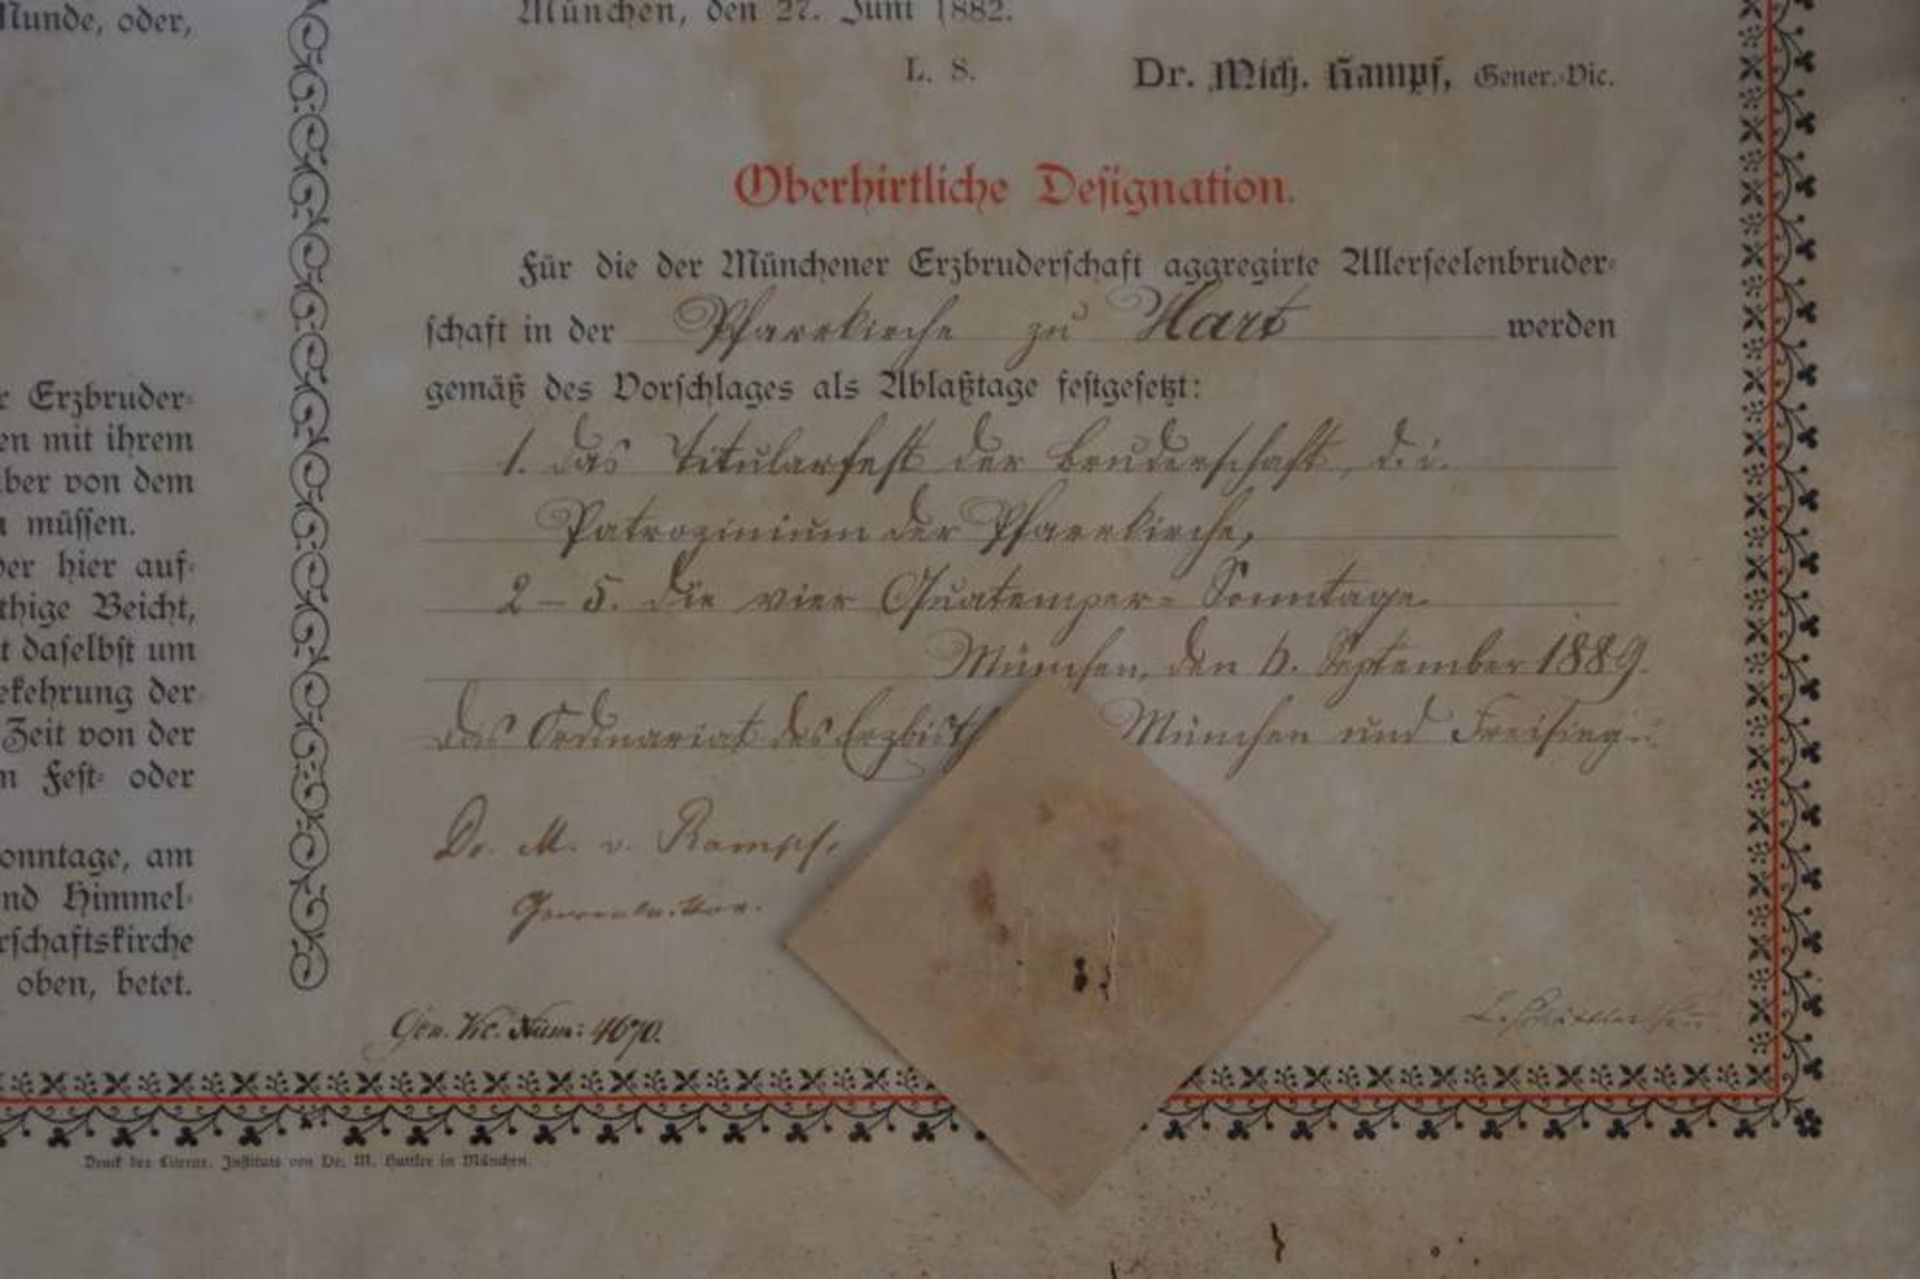 Munde, oder,
r Erzbruder-
en mit ihrem
ber von dem
müssen.
der hier auf-
thige Beicht,
t daselbst um
ekehrung der
Zeit von der
n Fest- oder
onntage, am
nd Himmel-
rschaftskirche
oben, betet.
München, den 27. Juni 1882.
L. S.
Dr. Mich. Rampf, Gener.-Vic.
Oberhirtliche Designation.
Für die der Münchener Erzbruderschaft aggregirte Allerseelenbruder-
schaft in der Pfarrkirche zu Hart werden
gemäß des Vorschlages als Ablaßtage festgesetzt:
1. das Titularfest der Bruderschaft, d. i.
Patrozinium der Pfarrkirche,
2-5. die vier Quatemper-Sonntage.
München, den 6. September 1889.
Das Ordinariat des Erzbisth München und Freising.
Dr. M. v. Rampf,
Generalvikar.
Gen. Vic. Num: 4670.
Druck des Literar. Instituts von Dr. M. Huttler in München.